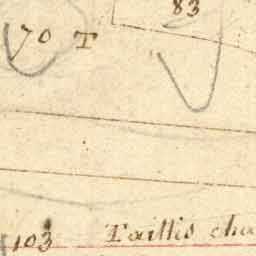 83
70 T
103 Taillis cha